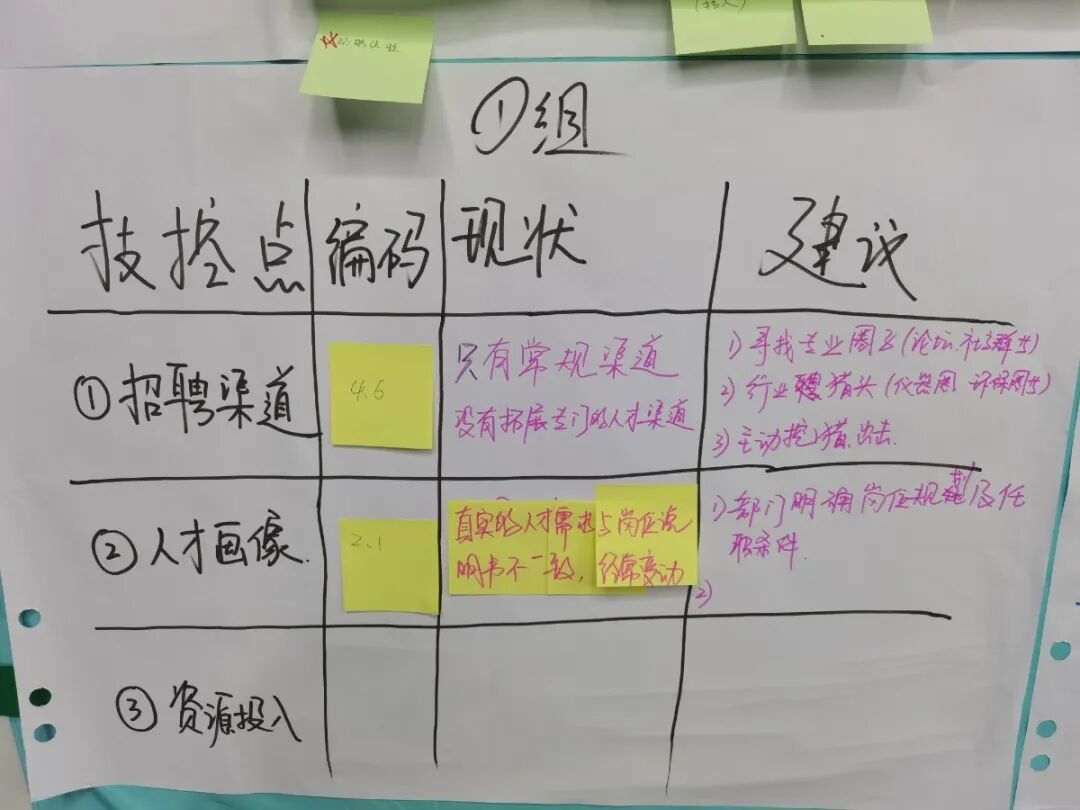 ①组
技控点 编码 现状 建议
①招聘渠道
4.6
只有常规渠道
没有拓展专门的人才渠道
1)寻找专业圈子(论坛.社群等)
2)行业猎头(仪器圈 环保圈等)
3)主动挖猎.出击.
②人才画像.
2.1
真实的人才需求与岗位说
明书不一致,经常变动
1)部门明确岗位规范及任
职条件.
2)
③资源投入